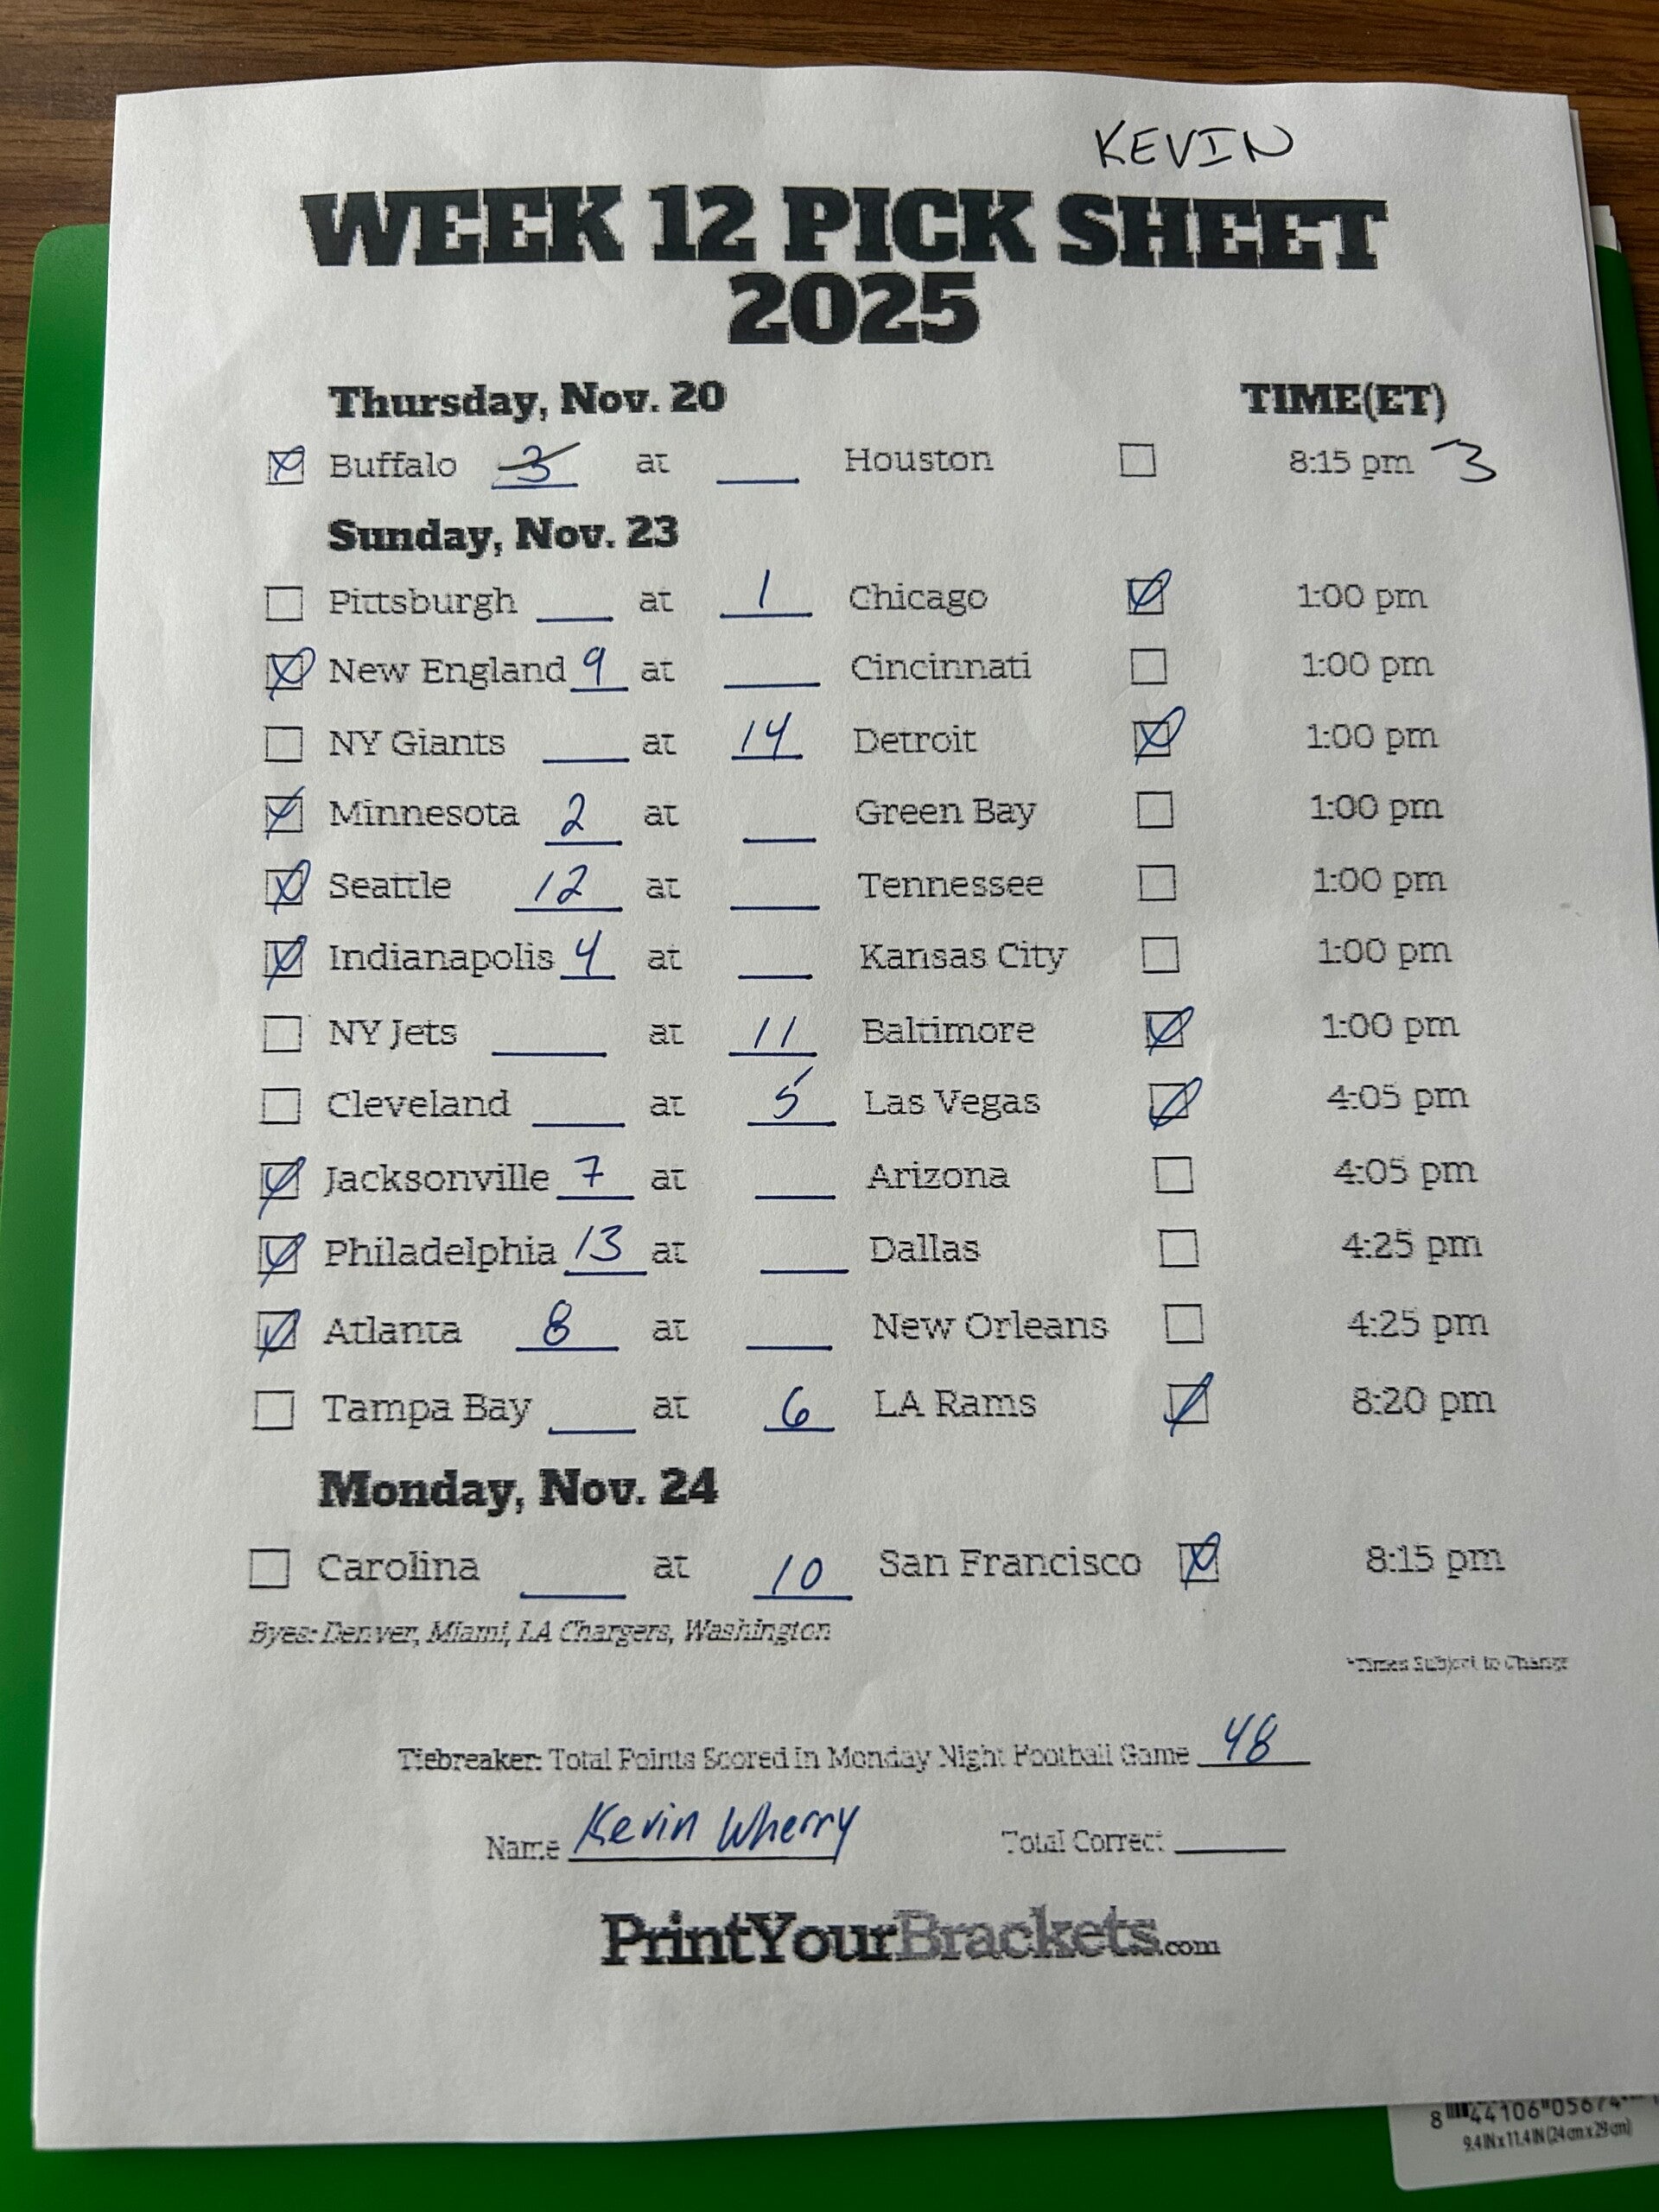 KEVIN
WEEK 12 PICK SHEET
2025
Thursday, Nov. 20 TIME(ET)
Buffalo 3 at Houston 8:15 pm 3
Sunday, Nov. 23
Pittsburgh at 1 Chicago 1:00 pm
New England 9 at Cincinnati 1:00 pm
NY Giants at 14 Detroit 1:00 pm
Minnesota 2 at Green Bay 1:00 pm
Seattle 12 at Tennessee 1:00 pm
Indianapolis 4 at Kansas City 1:00 pm
NY Jets at 11 Baltimore 1:00 pm
Cleveland at 5 Las Vegas 4:05 pm
Jacksonville 7 at Arizona 4:05 pm
Philadelphia 13 at Dallas 4:25 pm
Atlanta 8 at New Orleans 4:25 pm
Tampa Bay at 6 LA Rams 8:20 pm
Monday, Nov. 24
Carolina at 10 San Francisco 8:15 pm
Byes: Denver, Miami, LA Chargers, Washington
*Times Subject to Change
Tiebreaker: Total Points Scored in Monday Night Football Game 48
Name Kevin Wherry Total Correct
PrintYourBrackets.com
8 44106 05674
9.4 IN x 11.4 IN (24 cm x 29 cm)